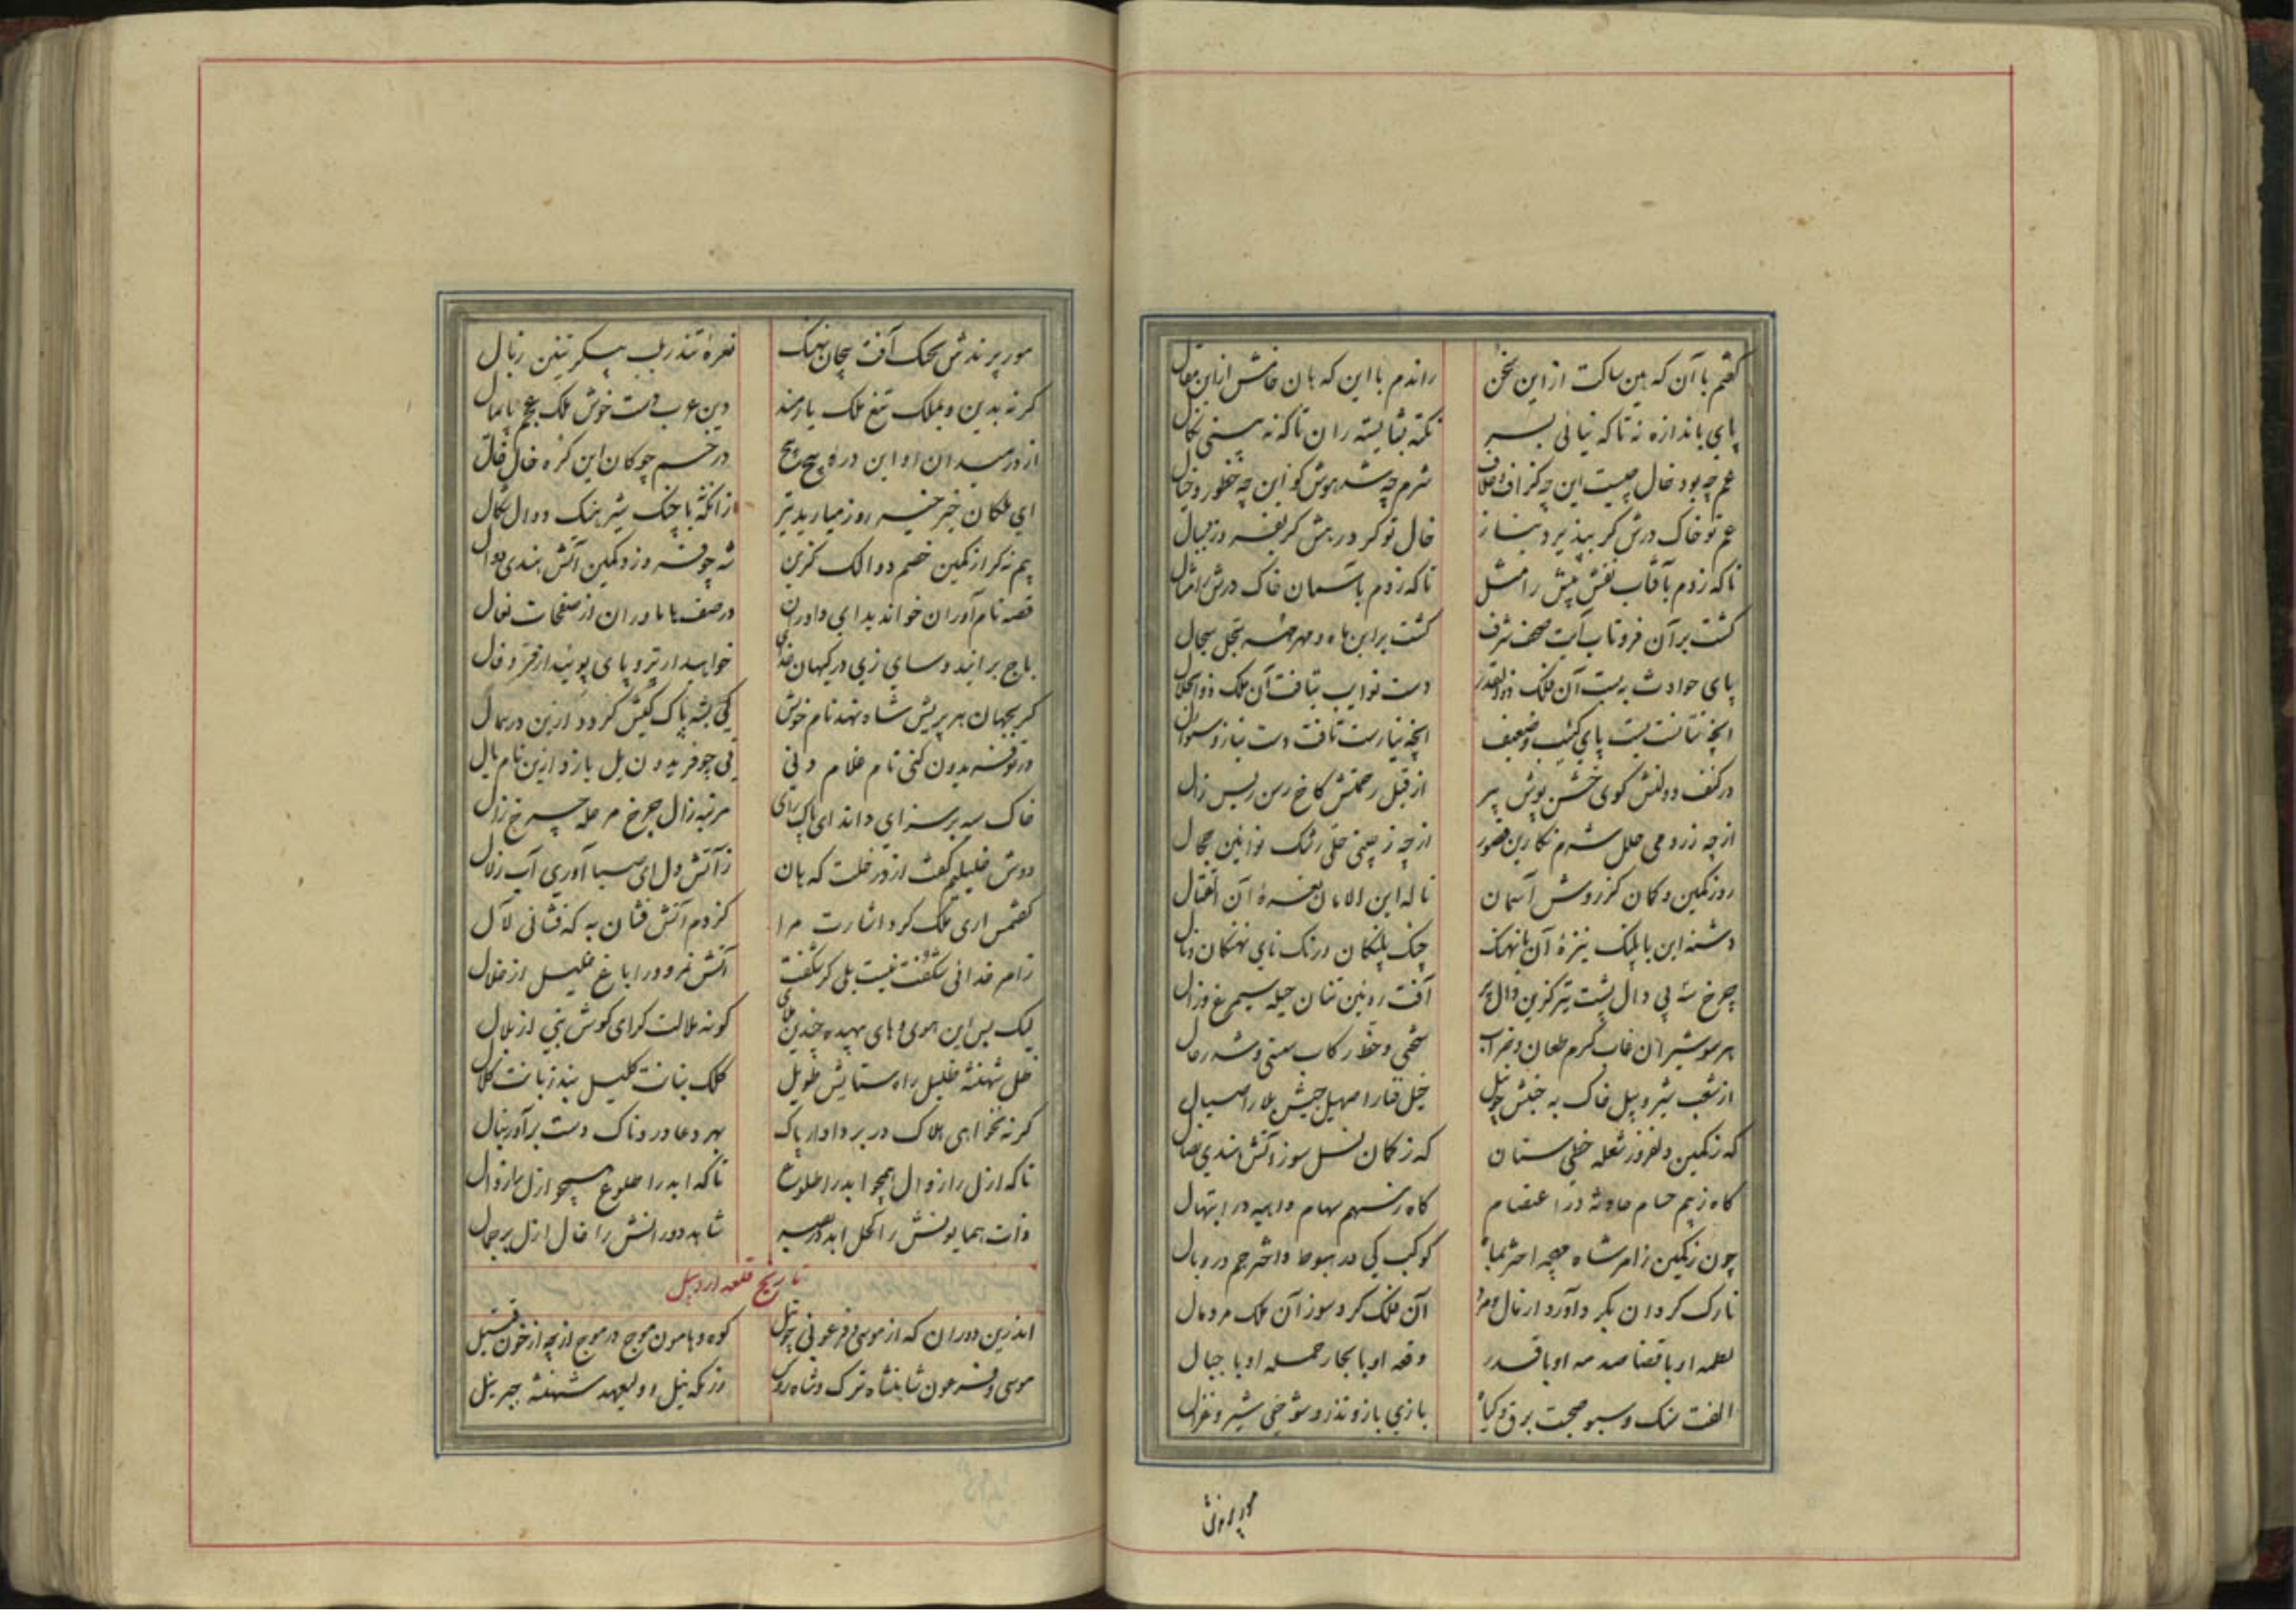 گفتم با آن که هین ساکت از این سخن
راندم با این که هان خامش ازین مقال
پای باندازه نه تا که نیائی بسر
نکته بشایسته ران تا که نه بینی نکال
غم چه بود خال چیست این چه گزاف
شرم چه شد هوش کو این چه خطور و خیال
غم تو خاک درش گر بپذیرد نیاز
خال تو گرد رهش گر بفرود ز بال
تا که زدم بآفتاب نقش پیش را مثل
تا که زدم بآسمان خاک درش را مثال
گشت بر آن فر و تاب آیت صحف شرف
گشت بر این ماه و مهر سجل سجال
پای حوادث ببست آن فلک ذوالقدر
دست نوایب بتافت آن ملک ذو الجلال
آنچه نیارست بست پای کثیب وضعیف
آنچه نیارست تافت دست نیاز و سئوال
در کنف دولتش گوی خشن پوش پیر
از قبل رحمتش کاخ رسن ریس زال
از چه ز رومی حلل شرم نگارین قصور
از چه ز چینی حلی رشک نو آیین حجال
روز کمین و کمان کز روش آسمان
ناله این الامان نعره آن القتال
دشنه این با پلنگ نیزه آن با نهنگ
چنگ پلنگان و رنگ نای نهنگان و نال
چرخ سه پی دال پشت تیر گزین دال پر
آفت روئین تنان حیله سیمرغ و زال
هر سو شیران غاب گرم طعان و ضراب
سختی و خط رکاب سستی و شد رحال
از شغب شیر و پیل خاک به جنبش چو نیل
خیل قنا را صهیل جیش بلا را صیال
که ز کمین دلفروز شعله خطی سنان
که ز کمان نسل سوز آتش هندی نصال
گاه ز بیم حسام حادثه در اعتصام
گاه ز سهم سهام داهیه در ابتهال
چون ز کمین رامر شاه مهچه اختر نما
کوکب کی در هبوط و اختر جم در وبال
تارک گردان بگرد آورد
آن فلک گرد سوز آن ملک مرد مال
لطمه او با قضا صدمه او با قدر
وقعه او با بحار حمله او با جبال
الفت سنگ و سبو صحبت برق و گیا
بازی باز و تذرو شوخی شیر و غزال
مور پرندش
مور پرندش بجنگ آفت پیچان نهنگ
نعره تندر بلب پیکر تنین زبال
گر نه بدین و بملک تیغ ملک یارمند
دین عرب دست خوش ملک عجم پایمال
از در میدان او این دره پیچ پیچ
در خم چوگان این کره خال خال
ای ملکان خیر خیر روز میارید تیر
زانکه با جنگ شیر نیک دوال شکال
بیم نگر از کمین خصم دوالک گزین
شه چو فروزد کمین آتش هندی دوال
قصه نام آوران خوانید ای داوران
در صف یا داوران از صفحات نعال
باج برانید و سای زی در کیهان خدای
خواهید ار تر و پای پوئید ار فر و فال
گر بجهان هر پریش شاه نهد نام خویش
کی بشه پاک کیش گردد ازین در همال
ور تو فریدون کنی نام غلام دنی
نی چو فریدون یل بازو ازین نام یال
خاک سه برسزای داند ای پاک رای
مرتبه زال چرخ مرحله چرخ زال
دوش خلیلیم گفت از در خلت که هان
ز آتش دل ای صبا آوری آب زلال
گفتمش آری ملک کرد اشارت مرا
کز دم آتش فشان به که فشانی لآل
ز امر خدائی شگفت نیست بلی گر شگفت
آتش نمرود را باغ خلیل از خلال
لیک بس این هوی و های بیهده چندین
گونه ملالت گرای گوش بنی از بلال
ظل شهنشه ظلیل راه ستایش طویل
کلک بنانت کلیل بند زبانت کلال
گر نه نخواهی هلاک در بر دادار پاک
بهر دعا دردناک دست برآور بنال
تا که ازل را زوال همچو ابد را طلوع
تا که ابد را طلوع همچو ازل را زوال
ذات همایونش را کحل ابد در بصر
شاهد دورانش را خال ازل بر جمال
تاریخ قلعه اردبیل
اندرین دوران که از موسی و فرعونی چو نیل
کوه و هامون موج در موج از چه از خون قتیل
موسی و فرعون شاهنشاه ترک و شاه روس
رزمگه نیل و ولیعهد شهنشه جبرئیل